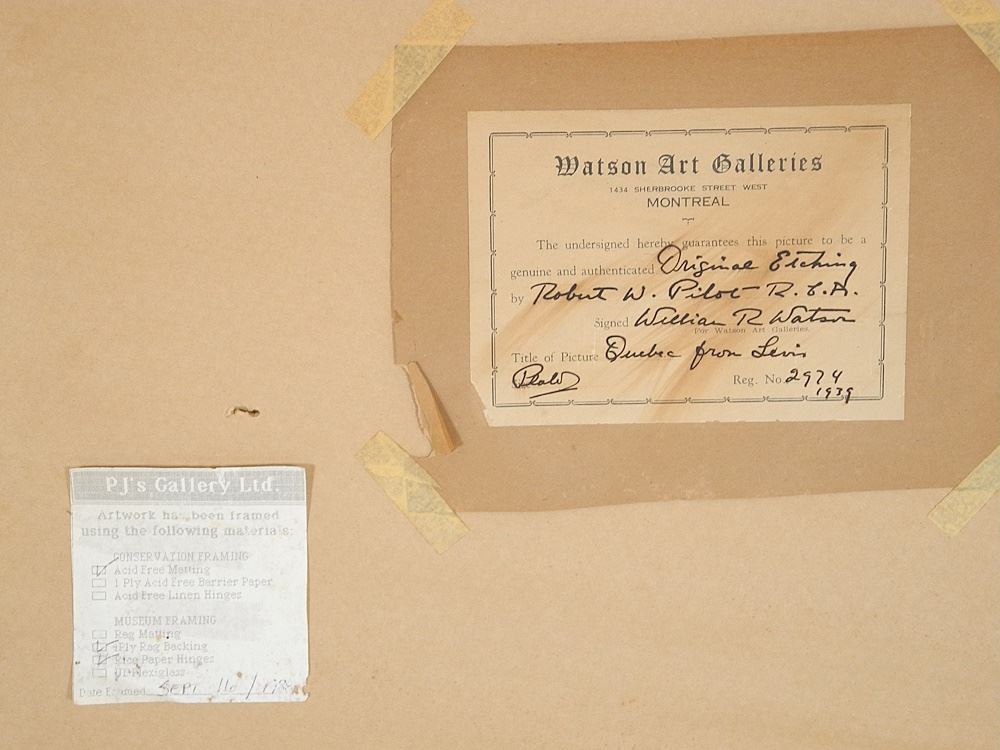 Watson Art Galleries
1434 SHERBROOKE STREET WEST
MONTREAL
The undersigned hereby guarantees this picture to be a
genuine and authenticated Original Etching
by Robert W. Pilot R.C.A.
Signed William R Watson
For Watson Art Galleries.
Title of Picture Quebec from Levis
Reg. No. 2974
1939
PJ's Gallery Ltd.
Artwork has been framed
using the following materials:
CONSERVATION FRAMING
Acid Free Matting
1 Ply Acid Free Barrier Paper
Acid Free Linen Hinges
MUSEUM FRAMING
Rag Matting
Ply Rag Backing
Rice Paper Hinges
Plexiglass
Date Framed SEPT